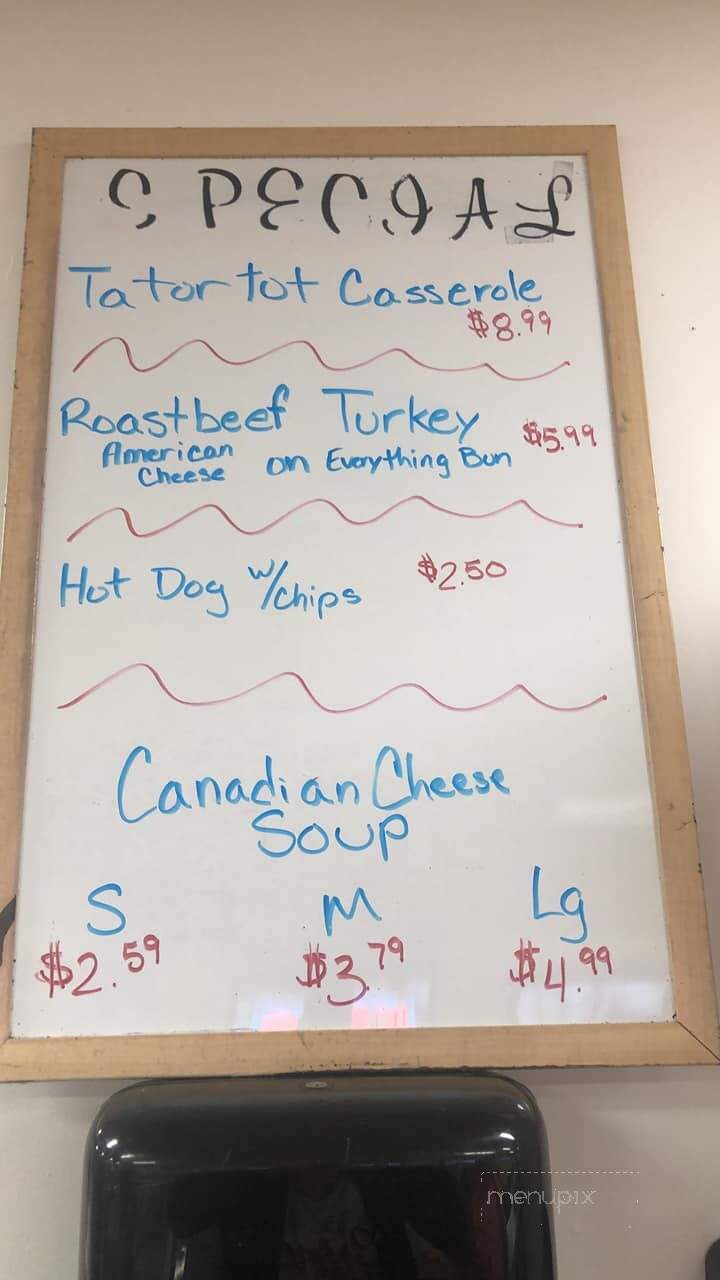 SPECIAL
Tator tot Casserole
$8.99
Roastbeef Turkey $5.99
American Cheese on Everything Bun
Hot Dog w/chips $2.50
Canadian Cheese
Soup
S M Lg
$2.59 $3.79 $4.99
menupix